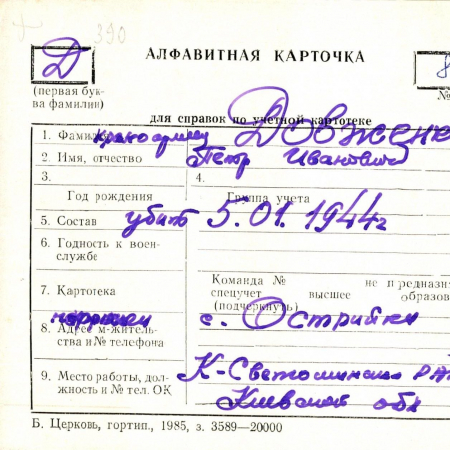 390
Д
АЛФАВИТНАЯ КАРТОЧКА
(первая бук-
ва фамилии)
№
для справок по учетной картотеке
1. Довжен
2. Имя, отчество Петр Иванович
3. 4.
Год рождения Группа учета
5. Состав убит 5.01.1944г
6. Годность к воен-
службе
7. Картотека Команда № не предназна
спецучет высшее образов
(подчеркнуть)
8. Адрес м-житель- с. Острийки
ства и № телефона
9. Место работы, дол- К-Святошинск
жность и № тел. ОК Киевской обл
Б. Церковь, гортип., 1985, з. 3589—20000